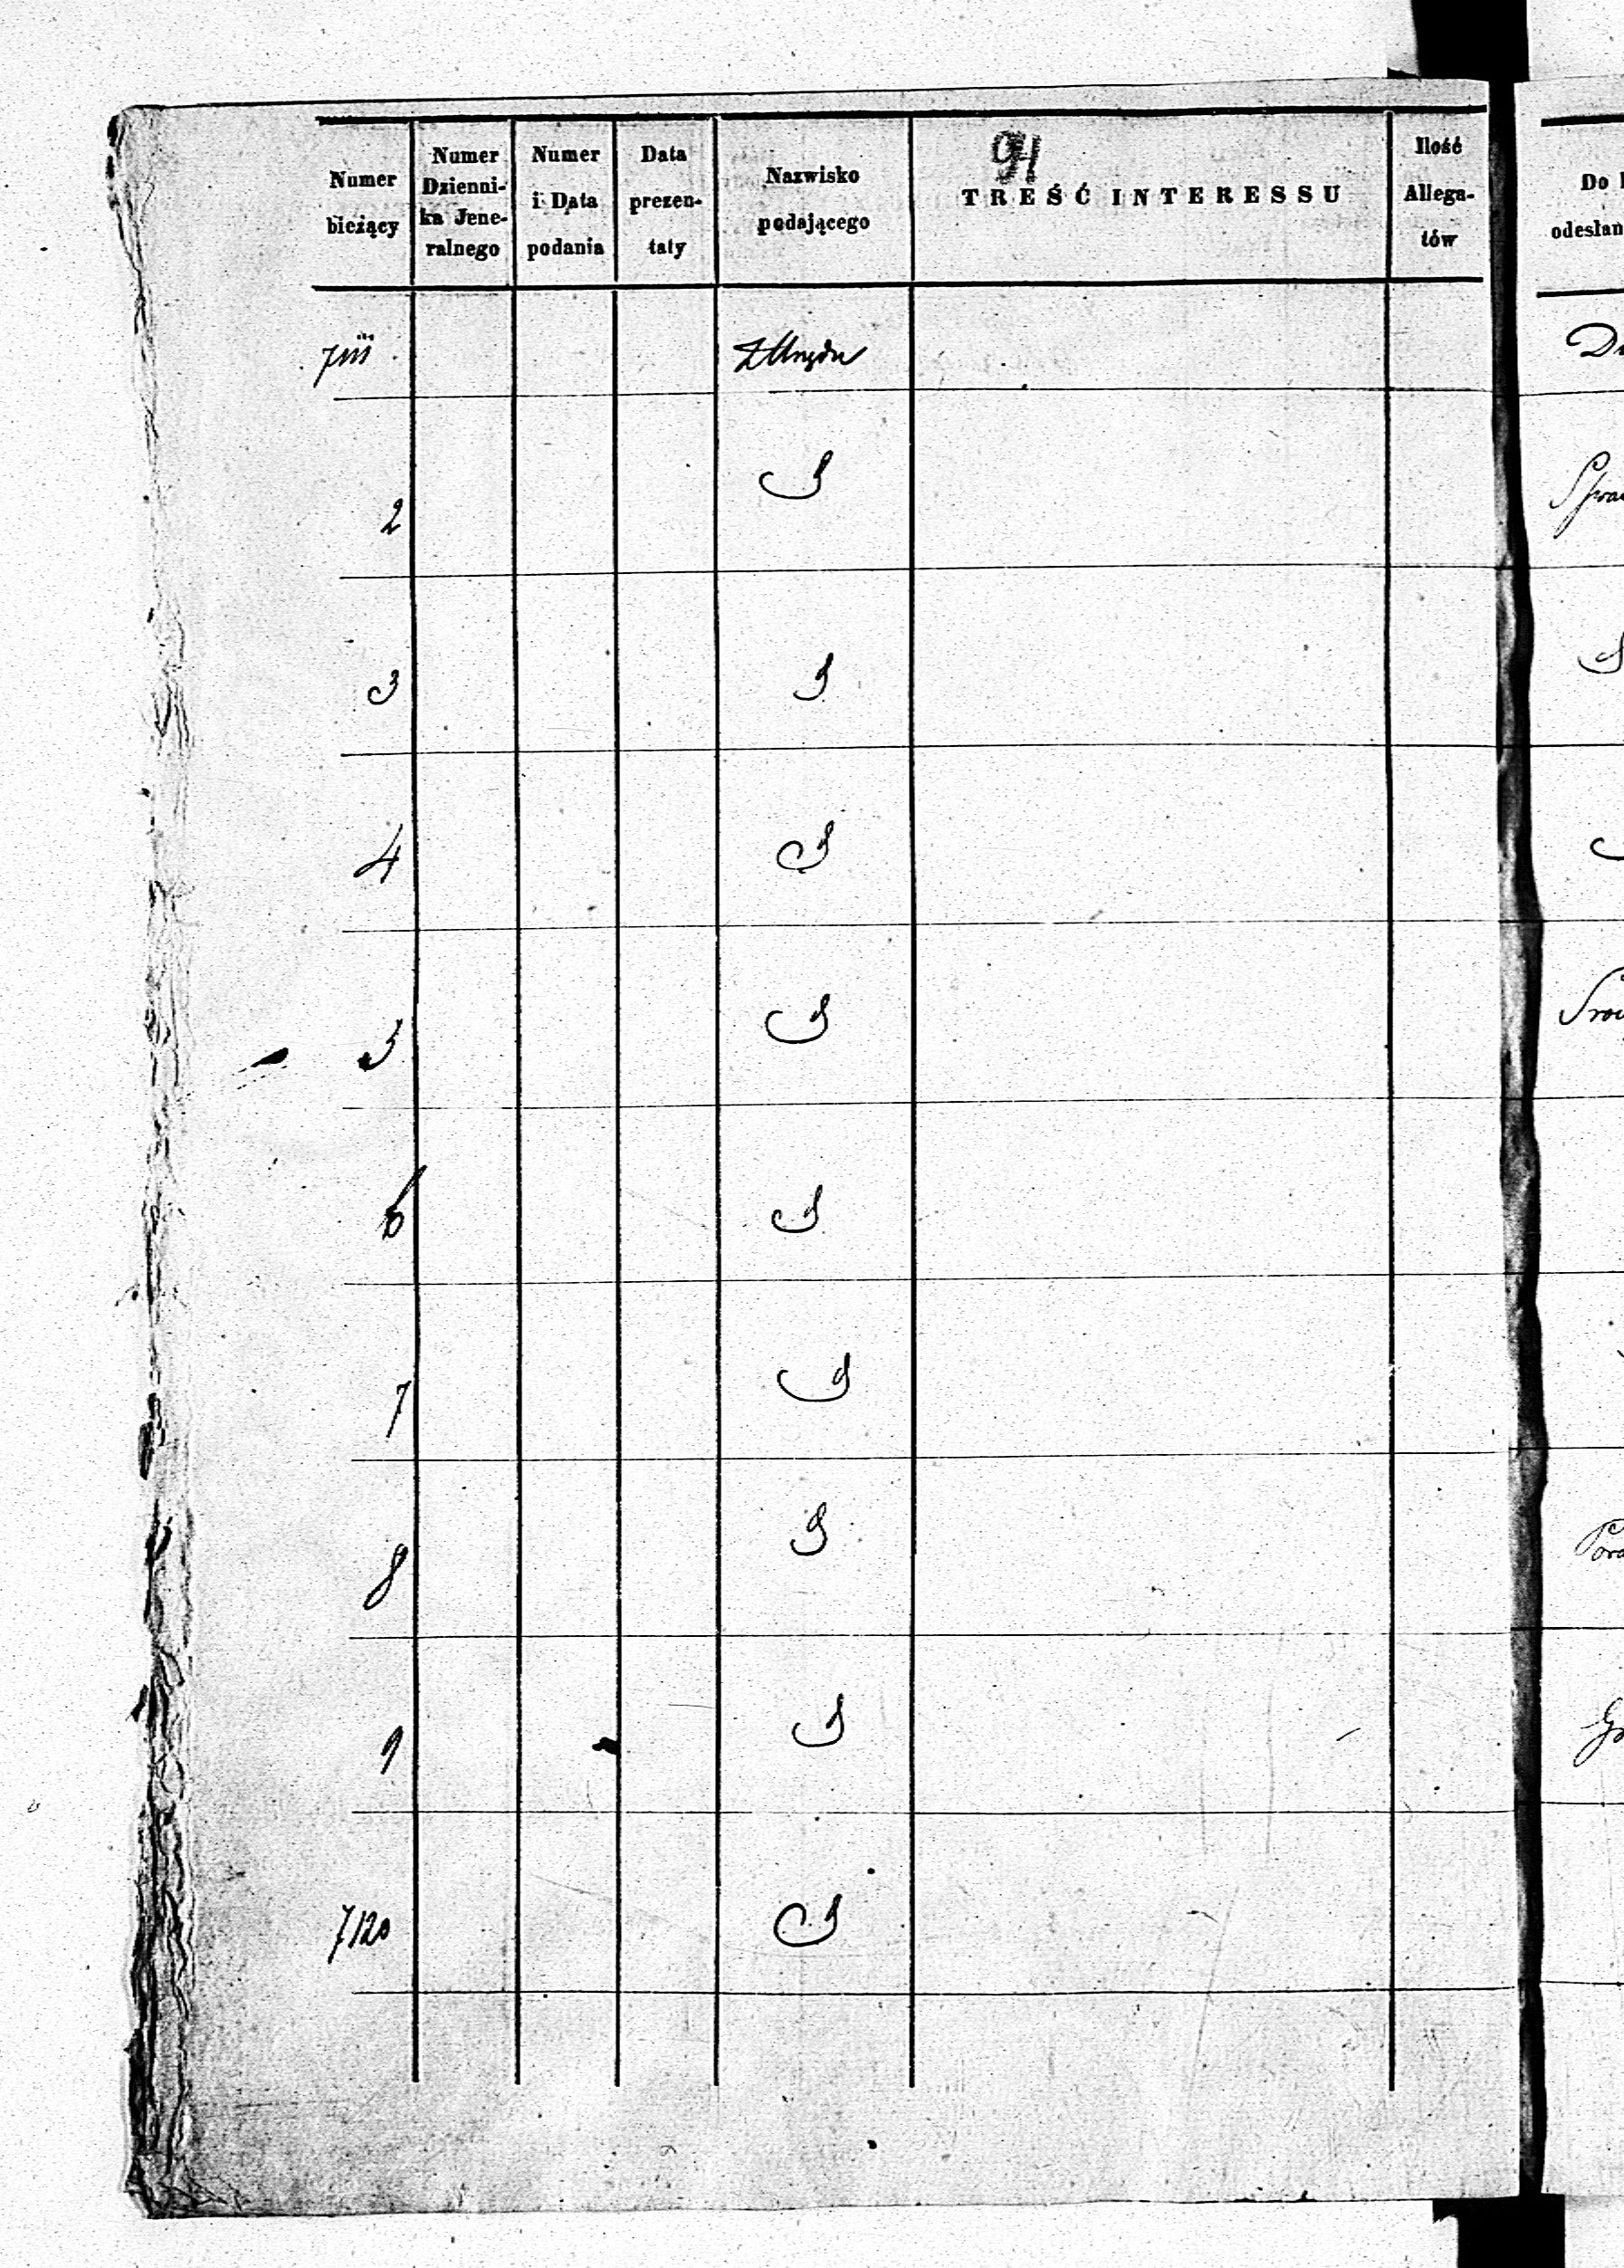 94
Numer bieżący
Numer Dzienni-ka Jene-ralnego
Numer i Data podania
Data prezen-taty
Nazwisko podającego
TREŚĆ INTERESSU
Ilość Allega-tów
Do
odesłan
7111 Z Urzędu
2
3
4
5
6
7
8
9
7120